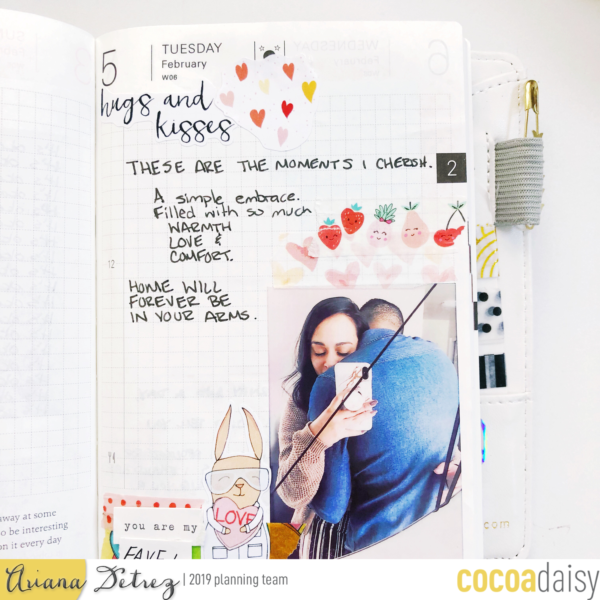 5
TUESDAY
February
W06
hugs and
kisses
THESE ARE THE MOMENTS I CHERISH.
2
A simple embrace.
Filled with so much
WARMTH
LOVE &
COMFORT.
12
HOME WILL
FOREVER BE
IN YOUR ARMS.
LOVE
you are my
FAVE!
away at some
o be interesting
on it every day
.com
Ariana Detrez | 2019 planning team
cocoadaisy